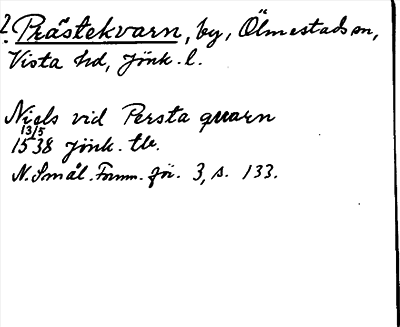 ? Prästekvarn, by, Ölmestads sn,
Vista hd, Jönk. l.
Niels vid Persta quarn
13/5
1538 Jönk. tb.
N. Smål. Fornm. för. 3, s. 133.